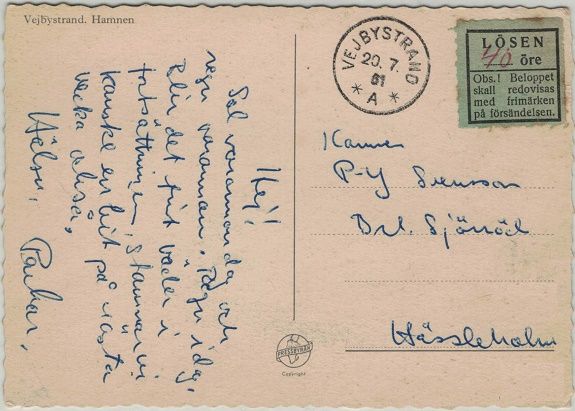 Vejbystrand. Hamnen
Hej!
Sol varannan dag och
regn varannan. Regn idag.
Blir det fint väder i
fortsättningen stannar vi
kanske en bit på nästa
vecka också.
Hälsn.
VEJBYSTRAND
20. 7.
61
* A *
LÖSEN
40 öre
Obs.! Beloppet
skall redovisas
med frimärken
på försändelsen.
P-Y Svensson
Sjöröd
Hässleholm
PRESSBYRÅN
Copyright